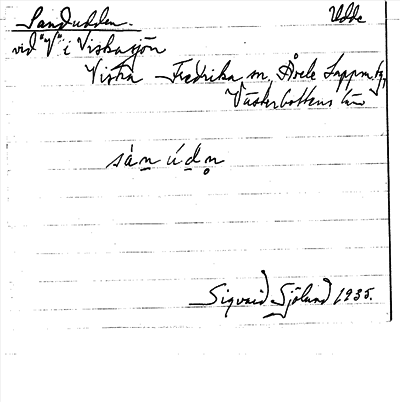 Sandudden. Udde
vid "V" i Viskasjön
Viska Fredrika sn, Åsele Lappm.
Västerbottens län
sá̱n ú̱dn̥
Sigvard Sjölund 1935.